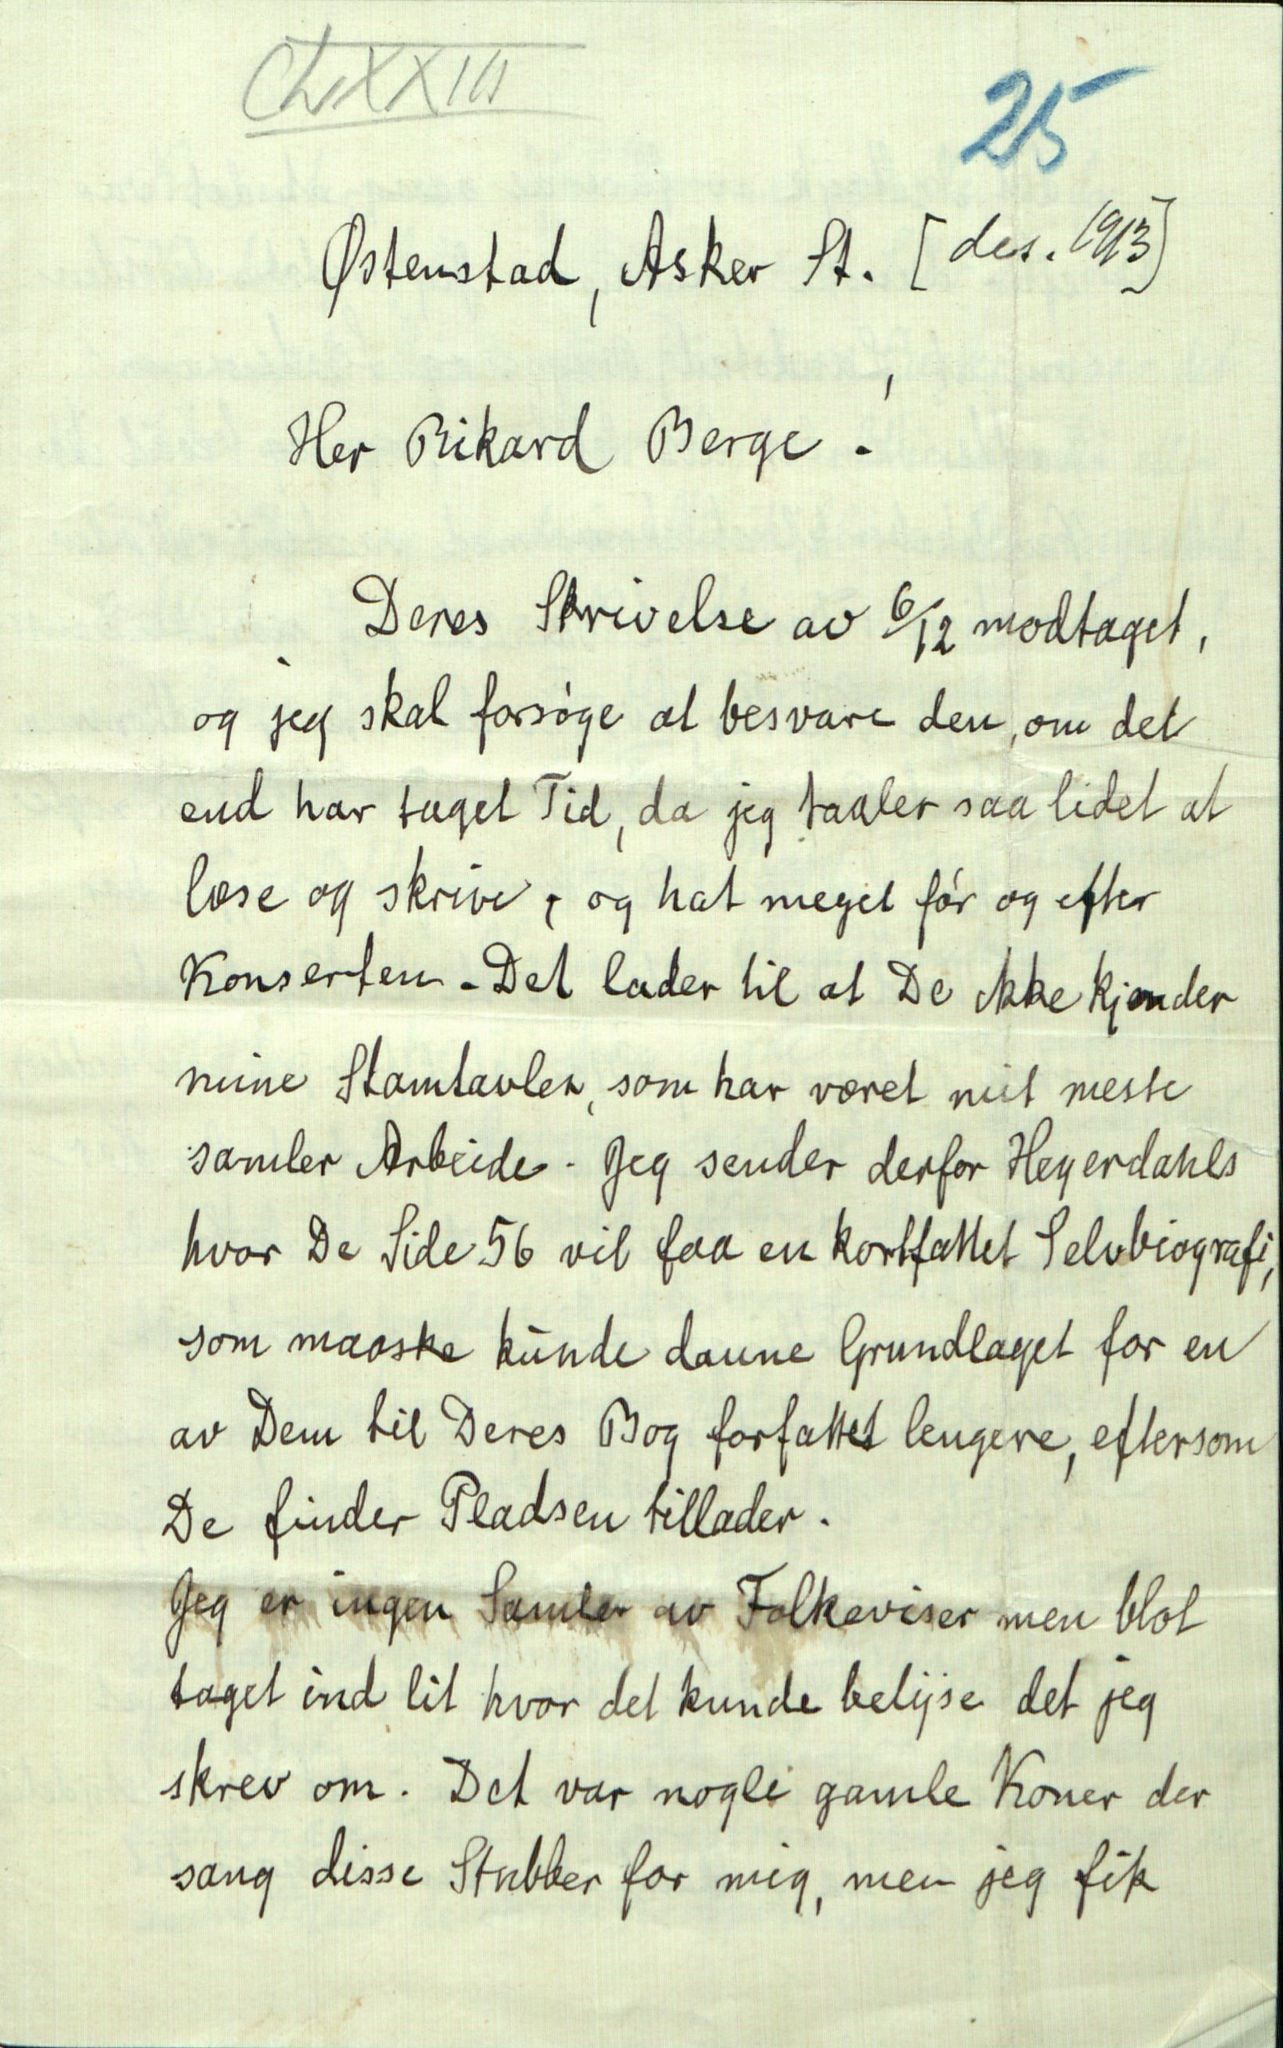 25
Østenstad, Asker St. [des. 1913]
Her Rikard Berge!
Deres Skrivelse av 6/12 modtaget,
og jeg skal forsøge at besvare den, om det
end har taget Tid, da jeg taaler saa lidet at
læse og skrive, og hat meget før og efter
Konserten. Det lader til at De ikke kjender
mine Stamtavler, som har været mit meste
samler Arbeide. Jeg sender derfor Heyerdahls
hvor De Side 56 vil faa en kortfattet Selvbiografi,
som maaske kunde danne Grundlaget for en
av Dem til Deres Bog forfattet lengere, eftersom
De finder Pladsen tillader.
Jeg er ingen Samler av Folkeviser men blot
taget ind lit hvor det kunde belyse det jeg
skrev om. Det var nogle gamle Koner der
sang disse Stubber for mig, men jeg fik